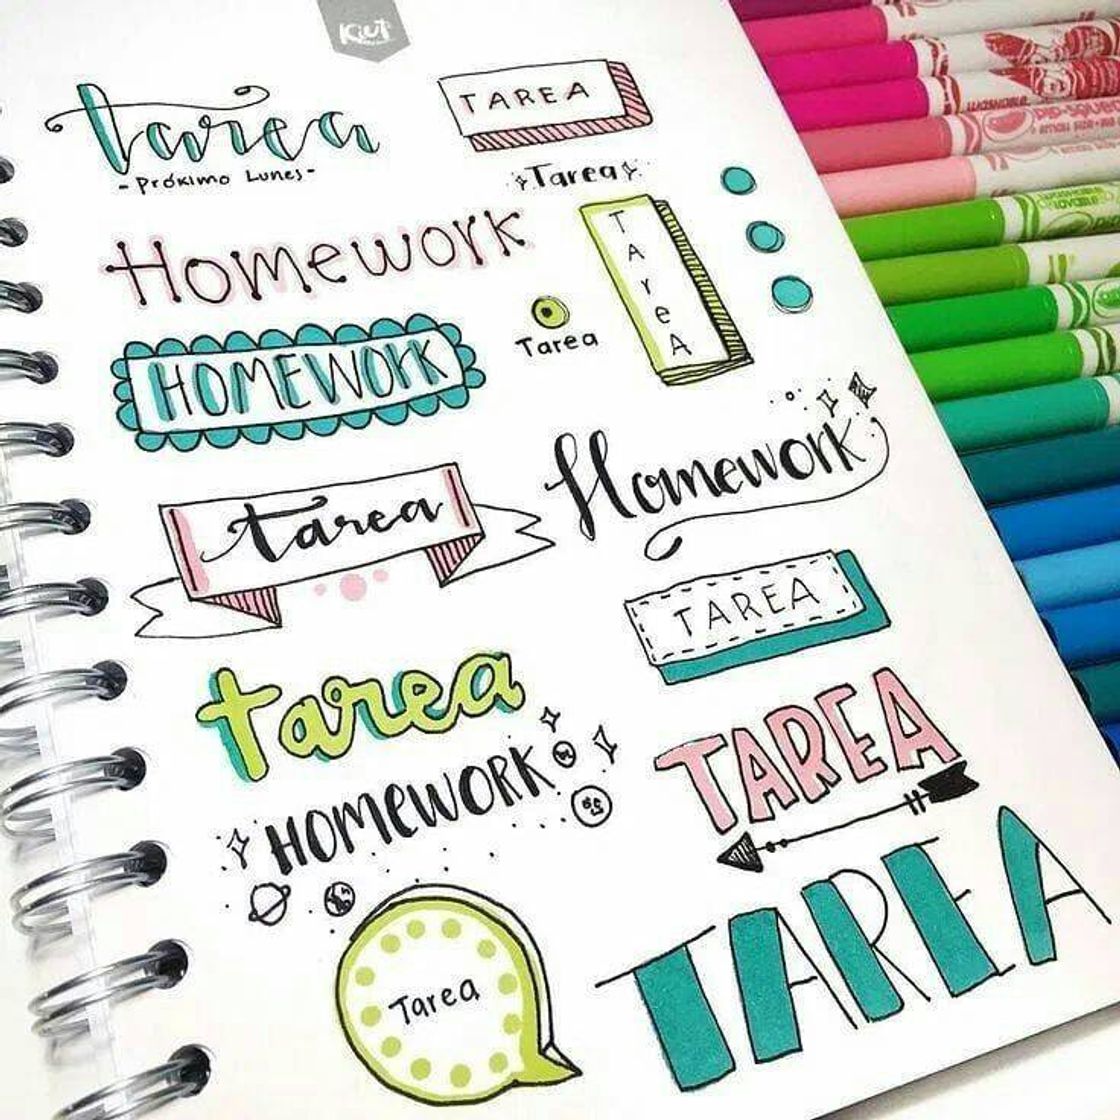 Kiut
tarea
TAREA
- Próximo Lunes -
Tarea
Homework
TArEA
Tarea
HOMEWORK
Homework
tarea
TAREA
tarea
TAREA
HOMEWORK
Tarea
TAREA